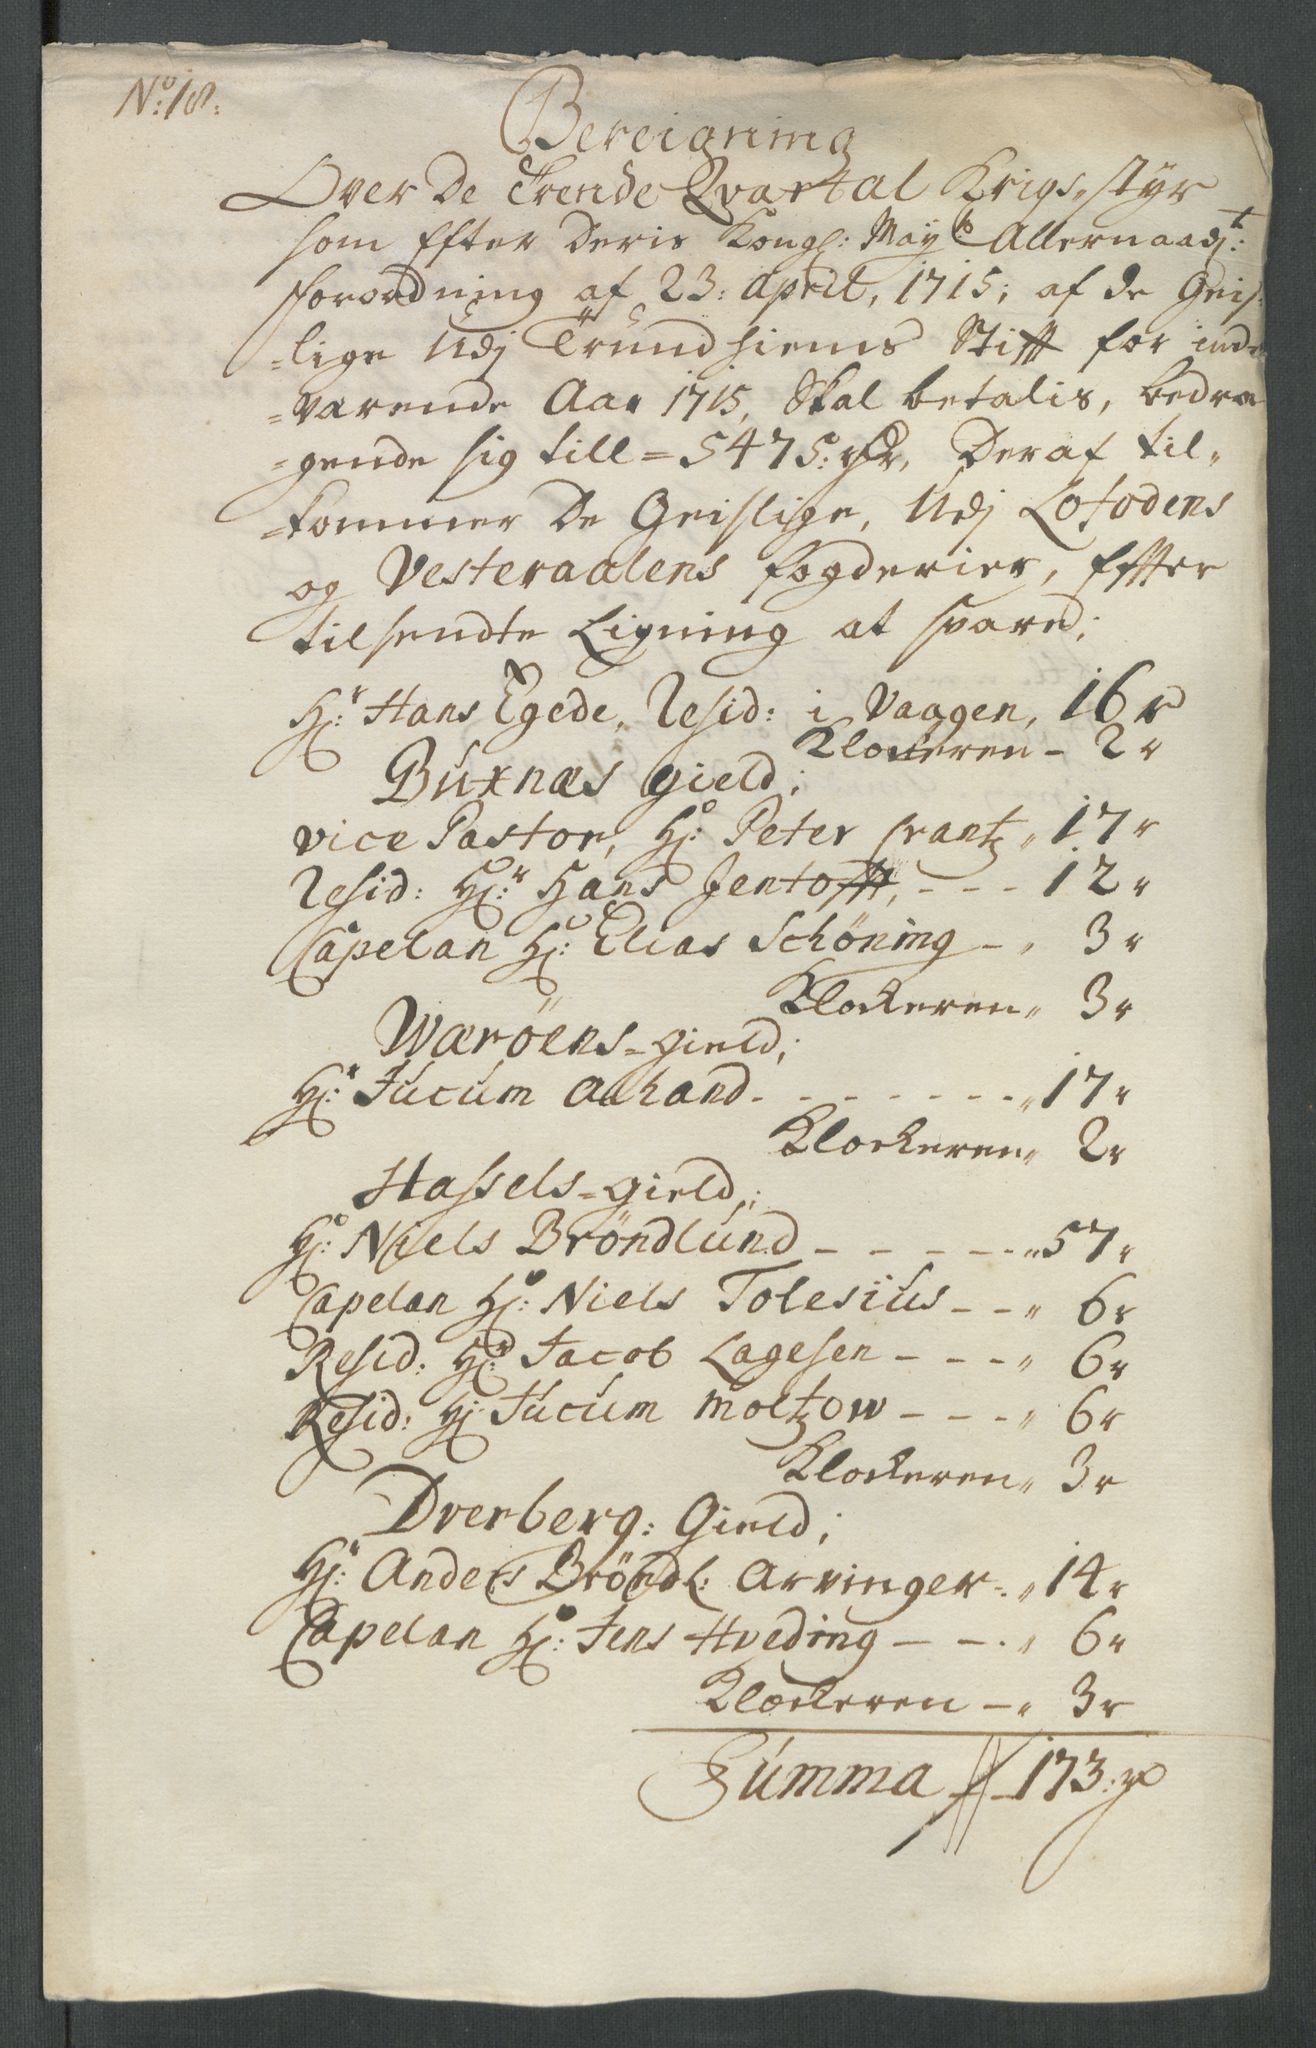 No: 18:
Bereigning
Over De Trende Qvartal Krigs-styr
som Efter Deris Kongl: Mayts Allernaadt:
forordning af 23: April, 1715; af de Geis-
-lige Udj Trundhiems Stifft for ind-
-værende Aar 1715, Skal betalis, bedra-
-gende sig till = 5475: rdr, Deraf til-
-kommer De Geislige, Udj Lofodens
og Vesteraalens fogderier, Effter
tilsendte Ligning at svare;
Hr: Hans Egede, Resid: i Vaagen, 16 r
Klockeren - 2 r
Buxnæs gield;
vice Pastor, Hr: Peter Crantz " 17 r
Resid: Hr: Hans Jentofft, - - - 12 r
Capelan Hr: Elias Schöning - " 3 r
Klockeren " 3 r
Wæröens-gield;
Hr: Jucum Ahand - - - - - - - " 17 r
Klockeren " 2 r
Hassels-gield;
Hr: Niels Bröndlund - - - - - " 57 r
Capelan Hr: Niels Tolesius - - " 6 r
Resid: Hr: Jacob Lagesen - - - " 6 r
Resid: Hr: Jucum Moltzow - - - " 6 r
Klockeren " 3 r
Dverberg: Gield;
Hr: Anders Bröndl: Arvinger - " 14 r
Capelan Hr: Jens Hveding - - " 6 r
Klockeren - " 3 r
Summa // 173: rd